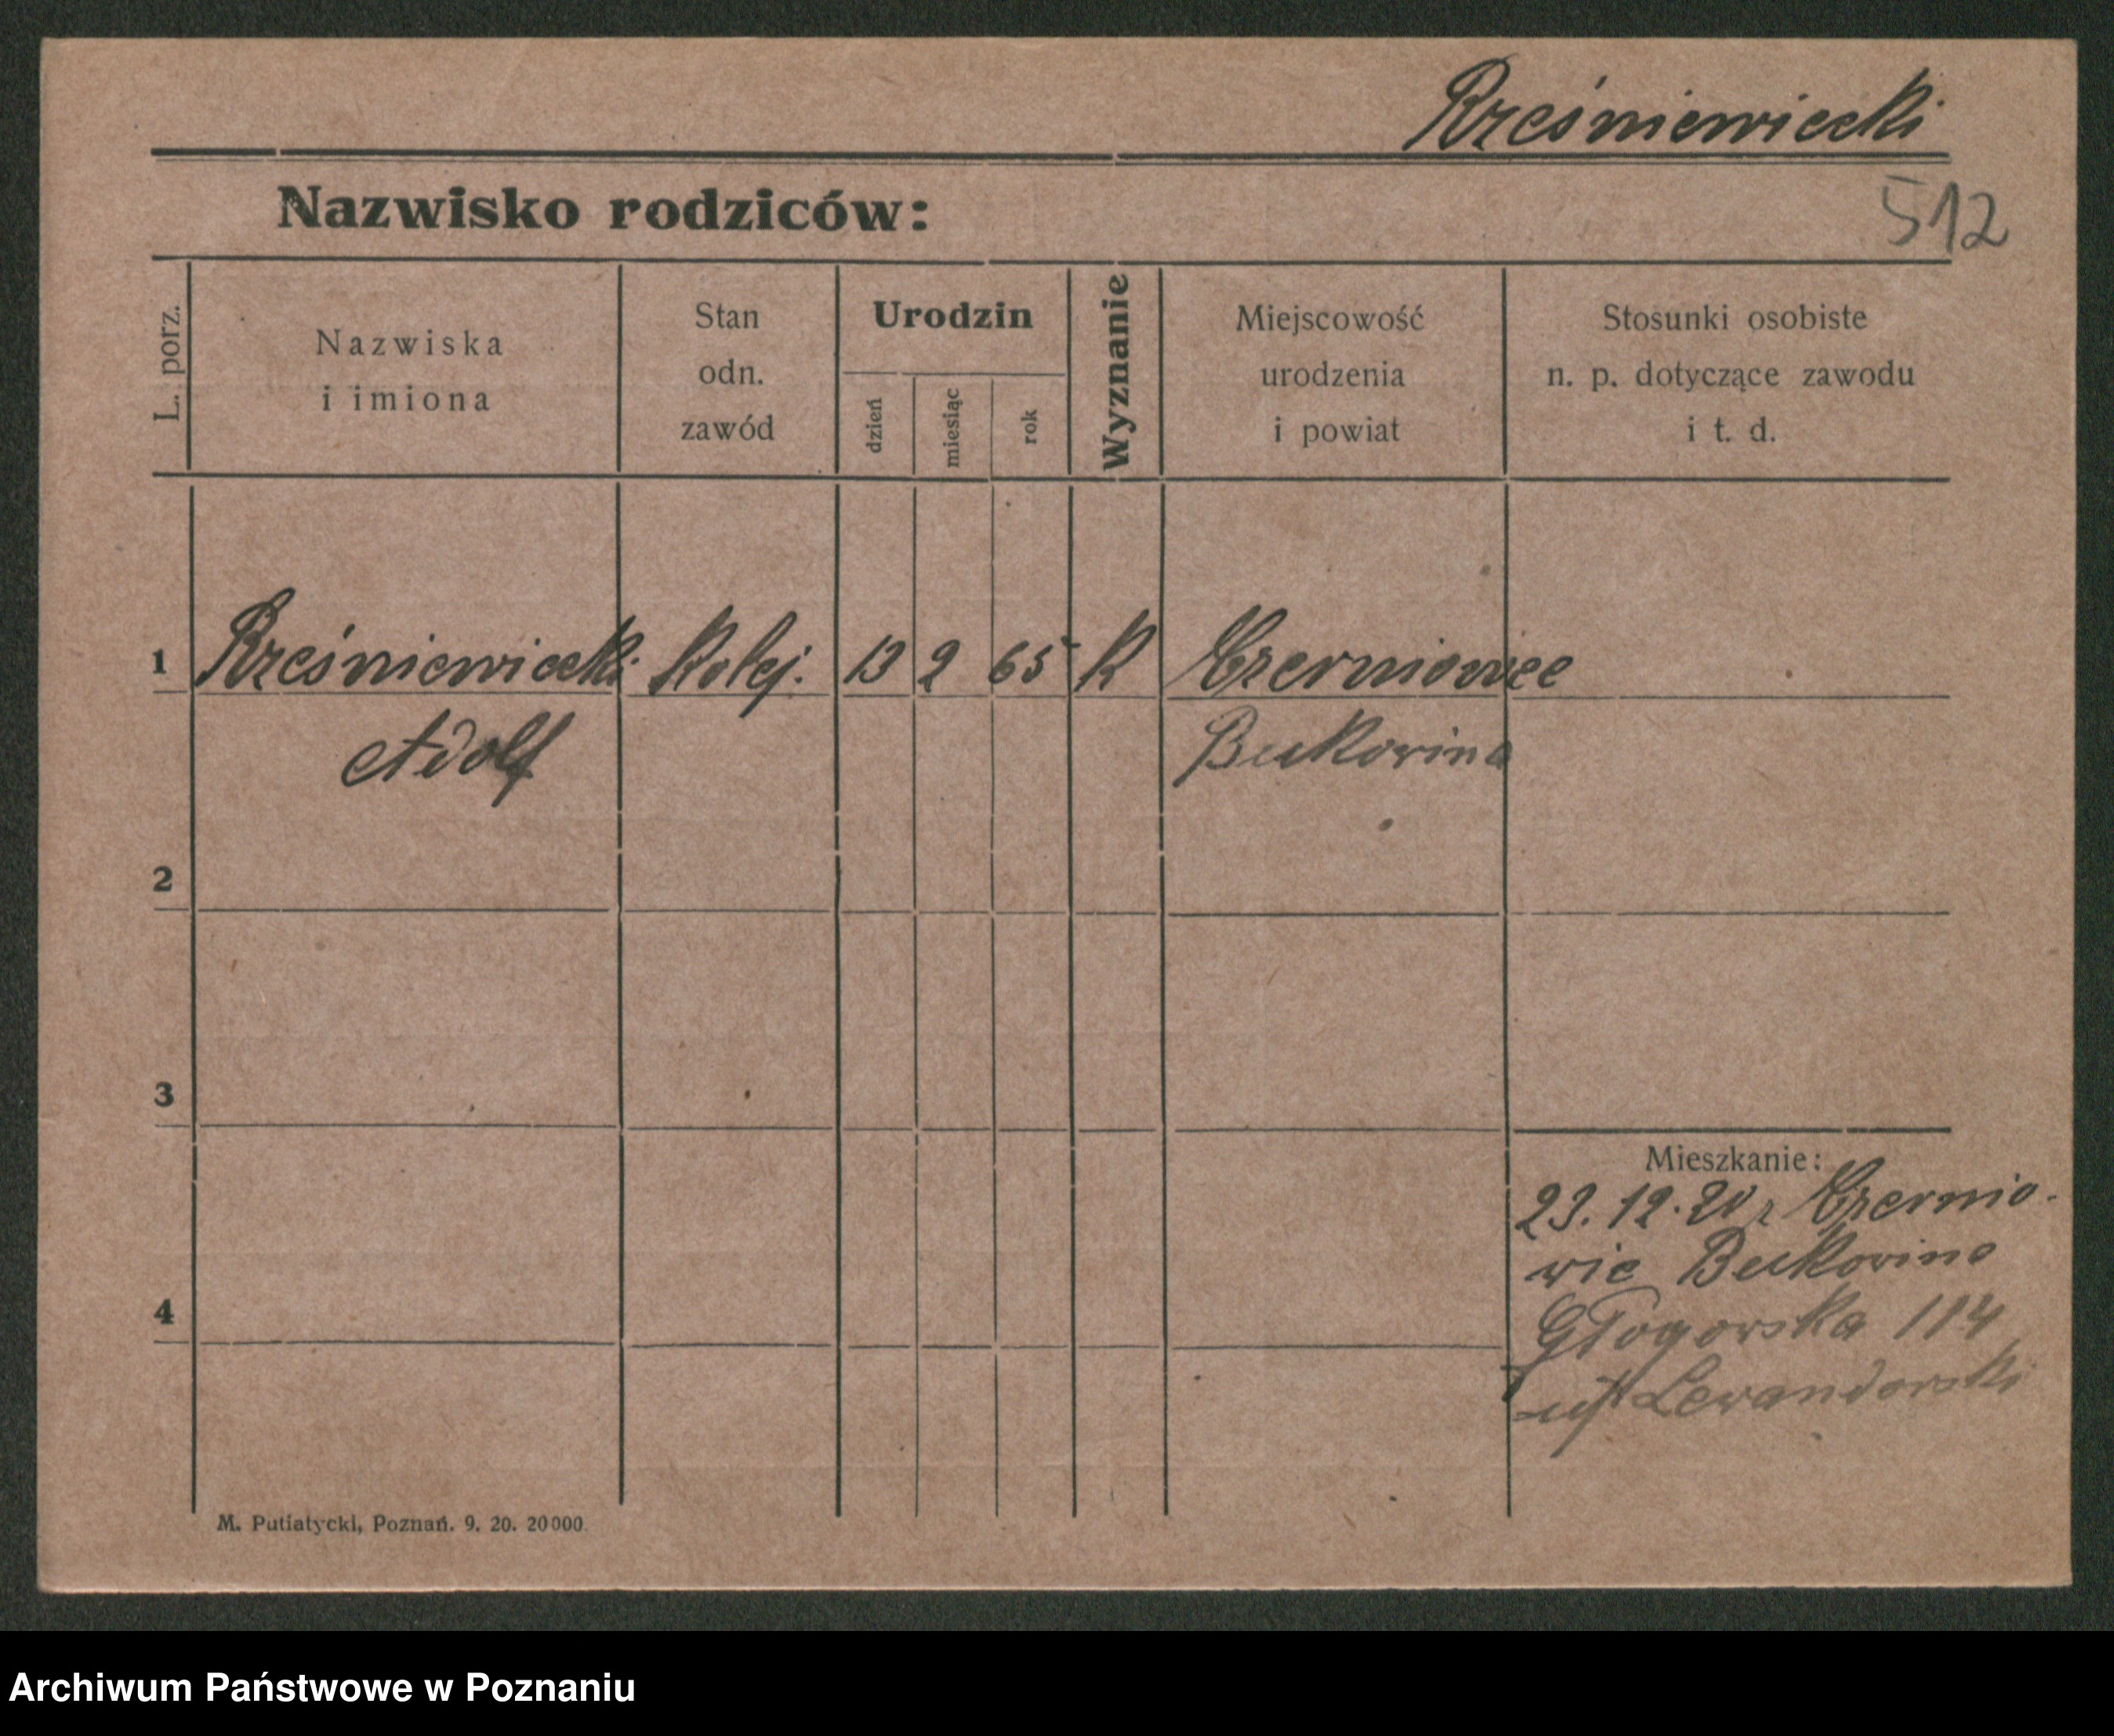 Rześniewiecki
Nazwisko rodziców:
512
L. porz.
Nazwiska
i imiona
Stan
odn.
zawód
Urodzin
dzień
miesiąc
rok
Wyznanie
Miejscowość
urodzenia
i powiat
Stosunki osobiste
n. p. dotyczące zawodu
i t. d.
1 Rześniewiecki Kolej. 13 2 65 K Czerniowce
Adolf Bukowina
2
3
4
Mieszkanie:
23.12.20 z Czernio-
wic Bukowina
Głogowska 114
Lewandowski
M. Putiatycki, Poznań. 9. 20. 20000.
Archiwum Państwowe w Poznaniu